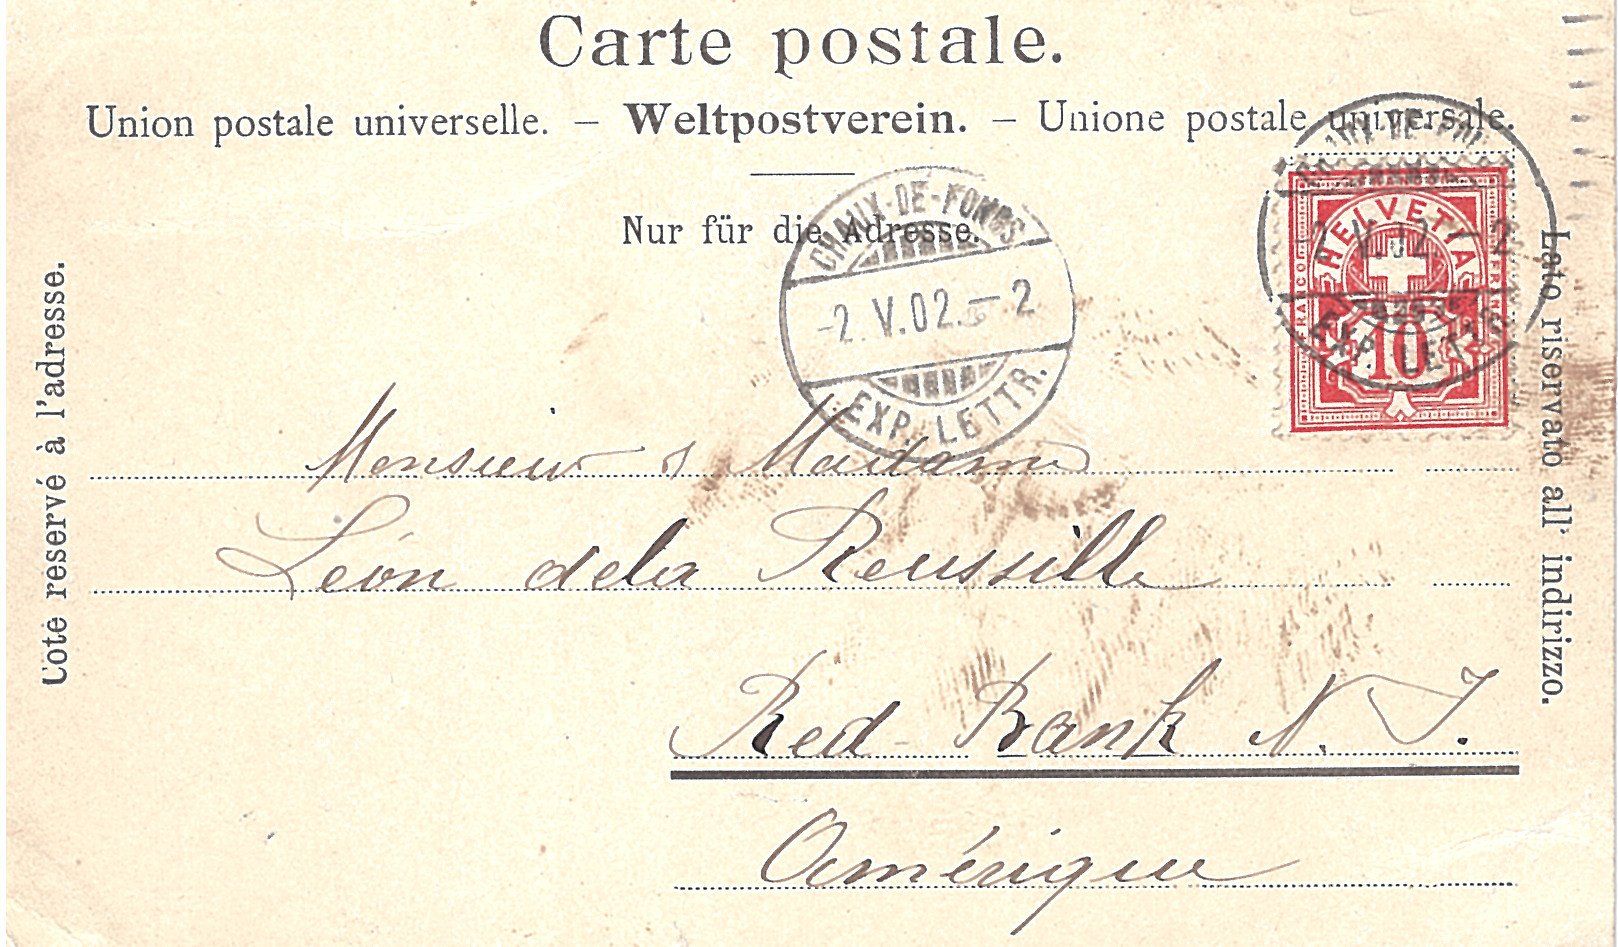 Carte postale.
Union postale universelle. – Weltpostverein. – Unione postale universale.
Nur für die Adresse.
Cote reservé à l'adresse.
Lato riservato all' indirizzo.
CHAUX-DE-FONDS
-2.V.02.-2
EXP. LETTR.
CHAUX-DE-FON
2.V.02.-2
EXP. LETTR
HELVETIA
FRANCO
FRANCO
10
Monsieur & Madame
Léon dela Reussille
Red-Bank N.J.
Amérique